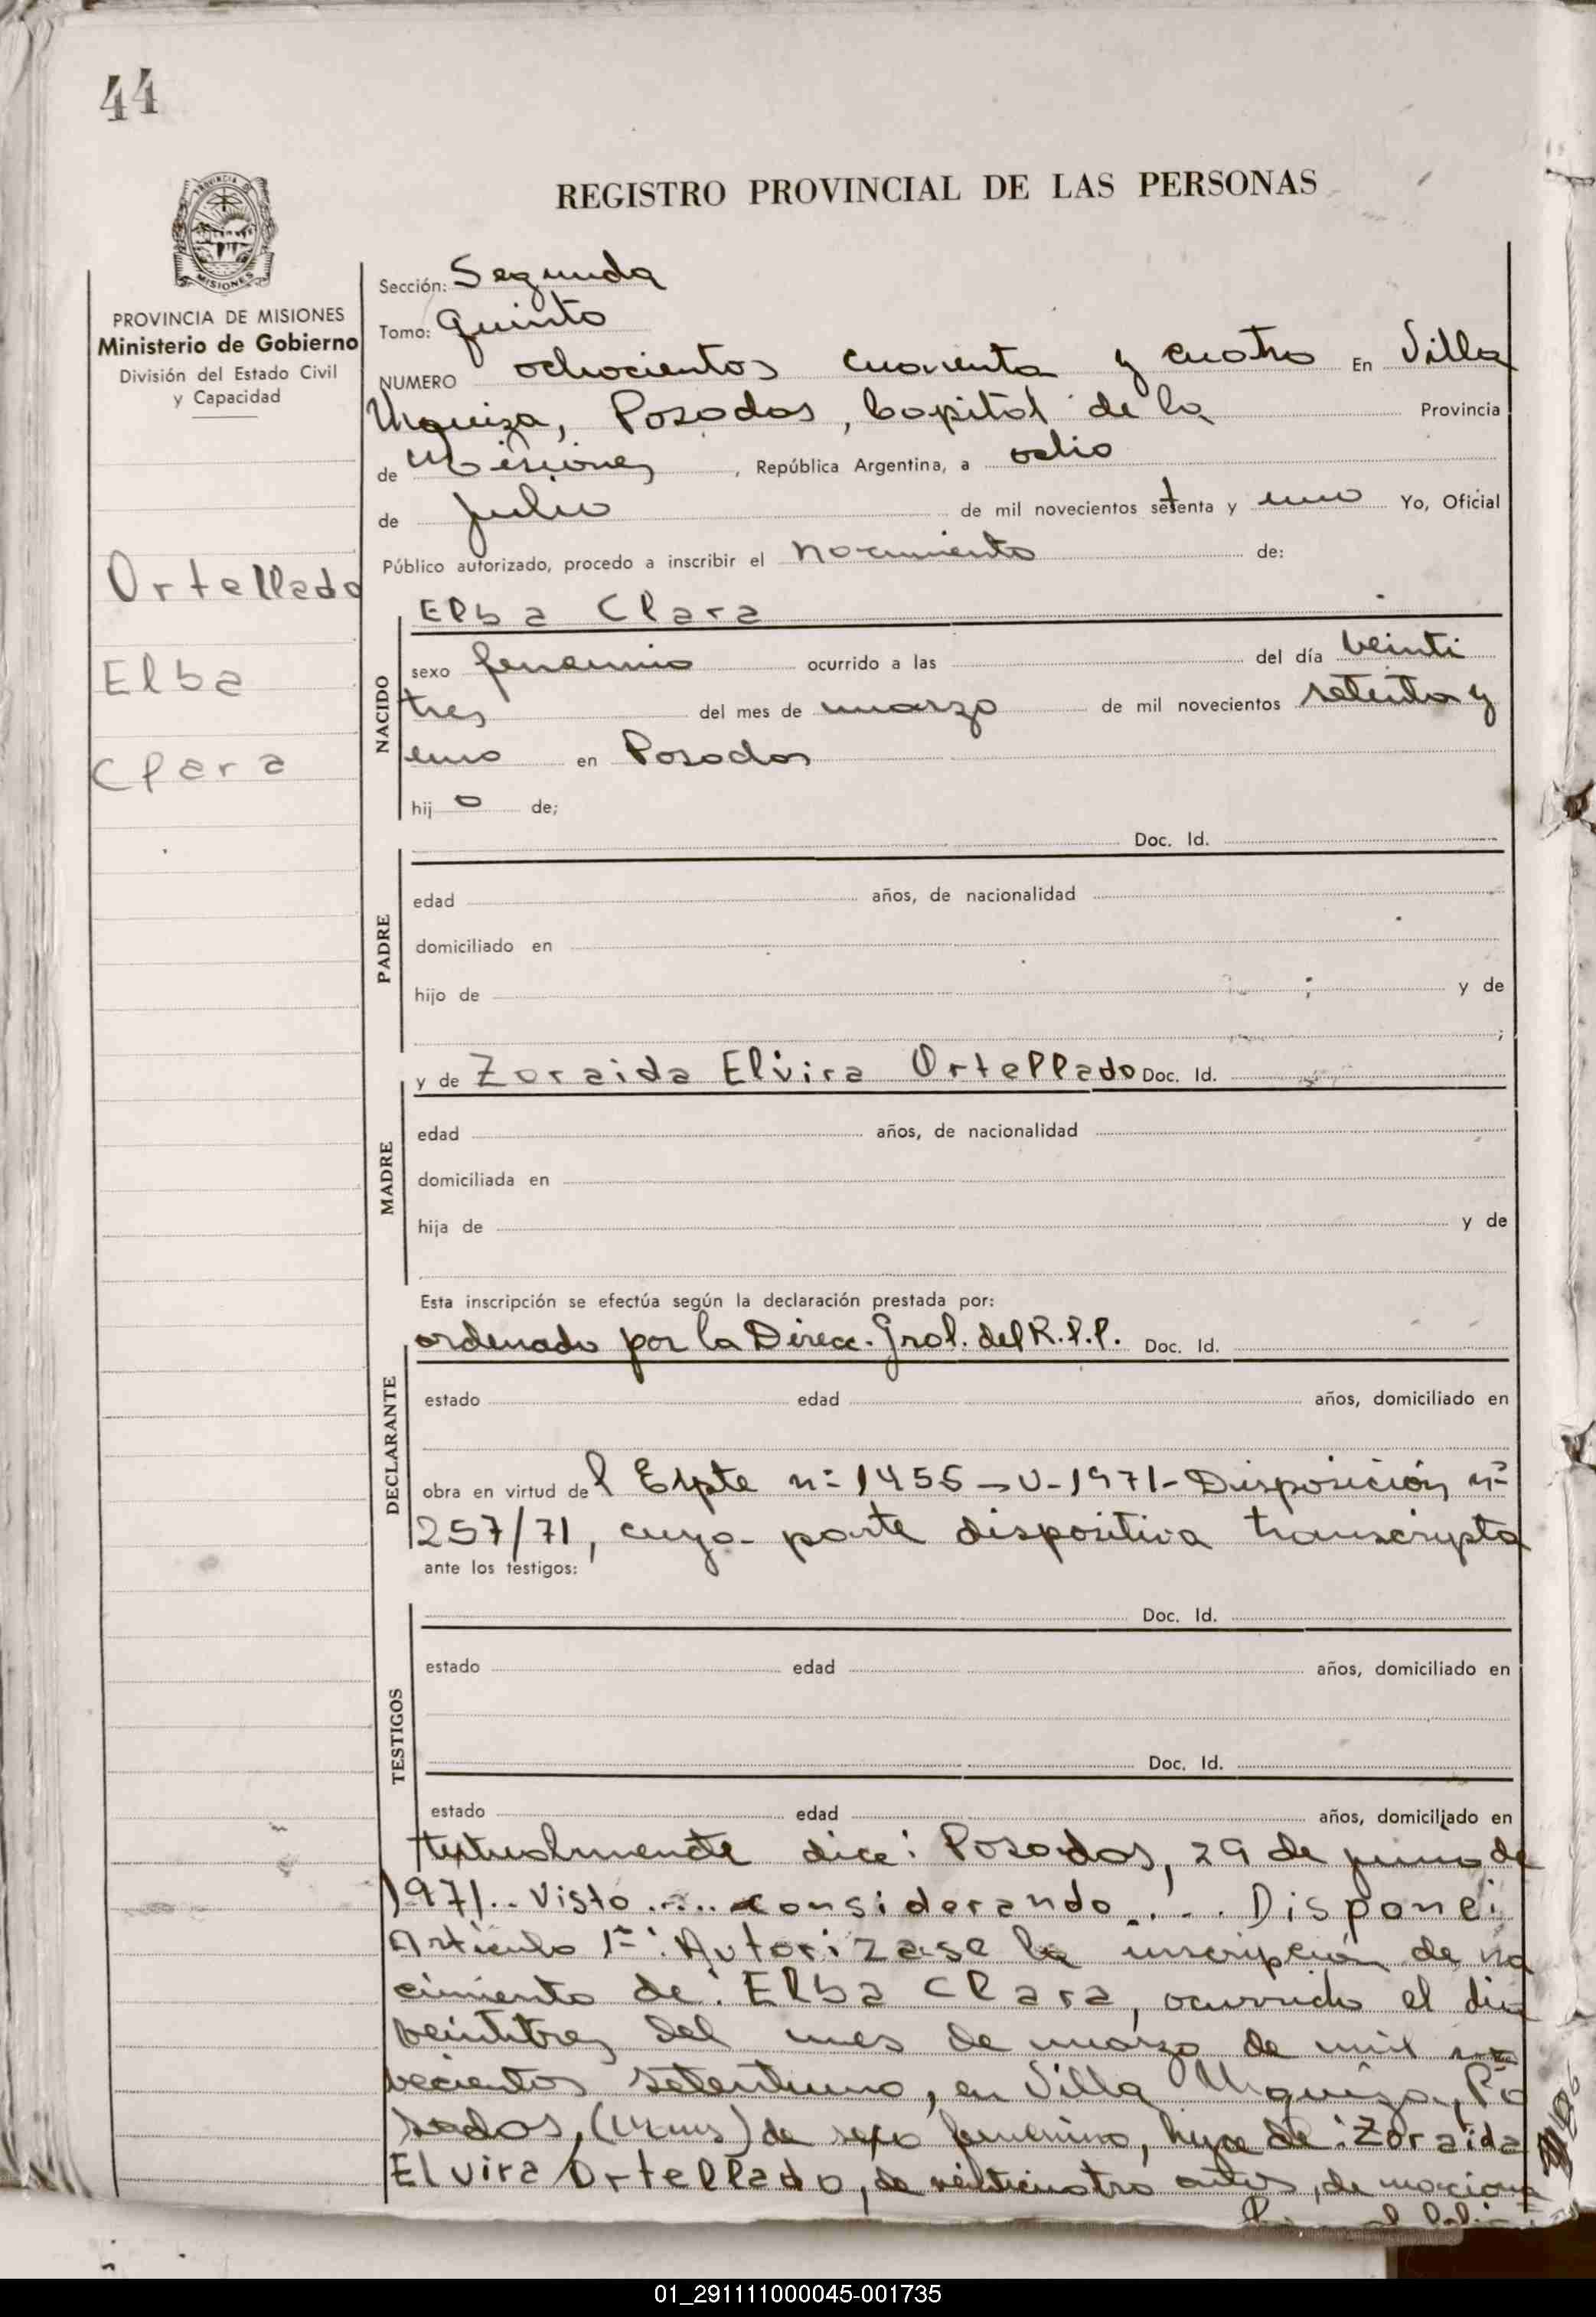 44
PROVINCIA DE
MISIONES
REGISTRO PROVINCIAL DE LAS PERSONAS
PROVINCIA DE MISIONES
Ministerio de Gobierno
División del Estado Civil
y Capacidad
Ortellado
Elba
Clara
Sección: Segunda
Tomo: Quinto
NUMERO ochocientos cuarenta y cuatro En Villa
Urquiza, Posadas, Capital de la Provincia
de Misiones, República Argentina, a ocho
de julio de mil novecientos setenta y uno Yo, Oficial
Público autorizado, procedo a inscribir el nacimiento de:
NACIDO
Elba Clara
sexo femenino ocurrido a las del día veinti
tres del mes de marzo de mil novecientos setenta y
uno en Posadas
hij a de;
PADRE
Doc. Id.
edad años, de nacionalidad
domiciliado en
hijo de y de
;
MADRE
y de Zoraida Elvira Ortellado Doc. Id.
edad años, de nacionalidad
domiciliada en
hija de y de
Esta inscripción se efectúa según la declaración prestada por:
DECLARANTE
ordenado por la Direcc. Gral. del R.P.P. Doc. Id.
estado edad años, domiciliado en
obra en virtud del Expte nº 1455-U-1971- Disposición nº
257/71, cuya parte dispositiva transcripta
ante los testigos:
TESTIGOS
Doc. Id.
estado edad años, domiciliado en
Doc. Id.
estado edad años, domiciliado en
textualmente dice: Posadas, 29 de junio de
1971.. Visto..... considerando.... Dispone:
Artículo 1º: Autorizase la inscripción de na
cimiento de: Elba Clara, ocurrido el día
veintitres del mes de marzo de mil no
vecientos setentiuno, en Villa Urquiza, Po
sadas, (Mnes) de sexo femenino, hija de: Zoraida
Elvira Ortellado, de veinticuatro años, de naciona
01_291111000045-001735